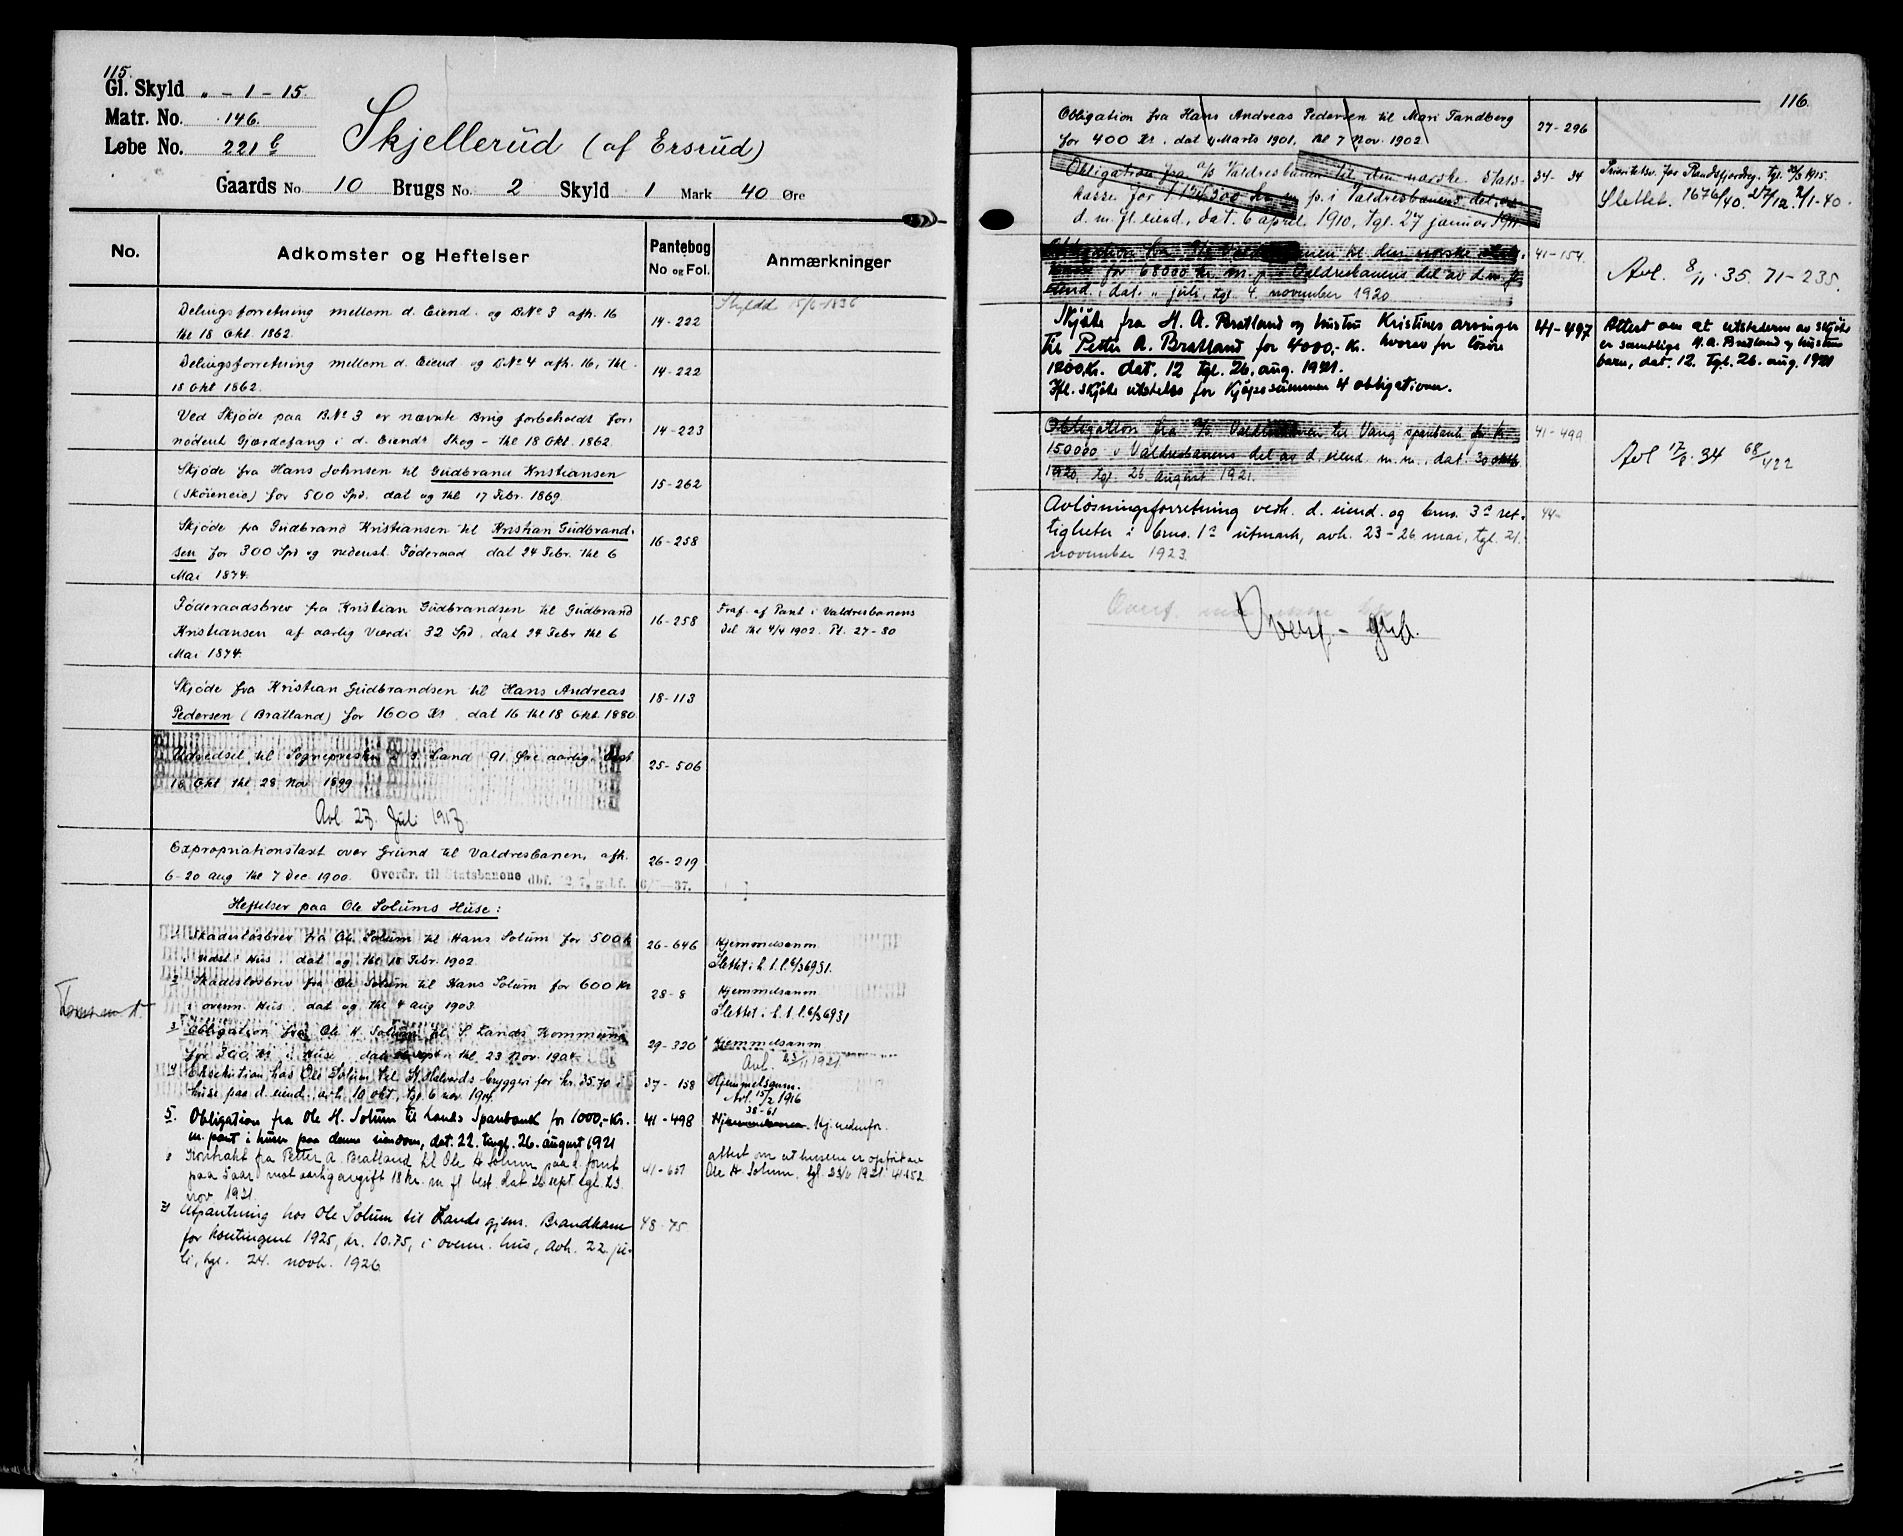 115.
Gl. Skyld „ - 1 - 15.
Matr. No. 146.
Løbe No. 221 b
Skjellerud (af Ersrud)
Gaards No 10 Brugs No. 2 Skyld 1 Mark 40 Øre
No. Adkomster og Heftelser Pantebog No og Fol. Anmærkninger
Skyldd 15/6-1836
Delingsforretning mellem d. Eiend. og BNo 3 afh. 16
thl 18 Okt. 1862. 14-222
Delingsforretning mellem d. Eiend og BNo 4 afh. 16, thl.
18 Okt 1862. 14-222
Ved Skjøde paa BNo 3 er nævnte Brug forbeholdt for-
nødent Gjærdefang i d. Eiends Skog - thl 18 Okt. 1862. 14-223
Skjøde fra Hans Johnsen til Gudbrand Kristiansen
(Skøieneie) for 500 Spd. dat og thl 17 Febr. 1869. 15-262
Skjøde fra Gudbrand Kristiansen til Kristian Gudbrand-
sen for 300 Spd og nedenst. Føderaad dat 24 Febr. thl 6
Mai 1874. 16-258
Føderaadsbrev fra Kristian Gudbrandsen til Gudbrand
Kristiansen af aarlig Værdi 32 Spd, dat 24 Febr thl 6
Mai 1874. 16-258
Fraf. af Pant i Valdresbanens
Del thl 4/4 1902. Pt. 27-80
Skjøde fra Kristian Gudbrandsen til Hans Andreas
Pedersen (Bratland) for 1600 Kr, dat 16 thl 18 Okt. 1880. 18-113
til Sognepresten i S. Land 91 Øre aarlig.
16 Okt thl 28 Nov 1899 25-506
Avl. 27. Juli 1917.
Expropriationstaxt over Grund til Valdresbanen, afh.
6-20 aug thl 7 Dec. 1900. Overdr. til Statsbanene 26-219
Heftelser paa Ole Solums Huse:
1 Skadesløsbrev fra Ole Solum til Hans Solum for 500 Kr
i nedst. Hus. dat og thl 18 Febr. 1902. 26-646
Hjemmelsanm.
Slettet i h. t. l. 6/3 6931.
2 Skadesløsbrev fra Ole Solum til Hans Solum for 600 Kr
i ovenn. Hus. dat og thl 4 aug 1903. 28-8
Hjemmelsanm
Slettet i h. t. l. 6/3 6931
3 Obligation fra Ole H. Solum til S. Lands Kommune
for 300 Kr i Huse, dat thl. 23 Nov. 1904. 29-320
Hjemmelsanm
Avl. 23/11 1921
4 Eksekution hos Ole Solum til bryggeri for kr. 35.70 i
huse paa d. eiend. avh. 10 okt, tgl 6 nov. 1914. 37-158
Hjemmelsanm.
Avl. 15/2 1916
38-61
5. Obligation fra Ole H. Solum til Lands Sparebank for 1000,- Kr.
m. pant i huse paa denne eiendom, dat. 22. tingl. 26. august 1921 41-498
Hjemmelsanm. Hj. nedenfor.
Kontrakt fra Petter A. Bratland til Ole H Solum paa d. tomt
paa 5 aar mot aarlig avgift 18 kr. m. fl. best. dat. 26 sept. tgl. 23
nov 1921. 41-651
attest om at husene er opført av
Ole H Solum. tgl. 23/11 1921 41-652
7) Utpantning hos Ole Solum til Lands gjens. Brandkasse
for kontingent 1925, kr. 10.75, i ovenn. hus, avh. 22. ju-
li, tgl. 24. novb. 1926. 48-75.
116.
Obligation fra Hans Andreas Pedersen til Mari Tandberg
for 400 Kr. dat 4 Marts 1901, thl 7 Nov. 1902. 27-296
Obligation fra A/S Valdresbanen til den norske Stats-
kasse for 1 124 300 kr. m. p. i Valdresbanens del av
d. m. fl. eiend, dat. 6 april 1910, tgl. 27 januar 1911. 34-34
Slettet. 1676/40. 27/12. 2/1-40.
Obligation fra A/S Valdresbanen til den norske Stats-
kasse for 68000 kr. m. p. i Valdresbanens del av d. m. fl.
eiend, dat. „ juli, tgl. 4. november 1920 41-154.
Avl. 8/11. 35. 71-235.
Skjøte fra H. A. Bratland og hustru Kristines arvinger
til Petter A. Bratland for 4000,- Kr. hvorav for løsøre
1200 Kr. dat. 12 tgl. 26. aug. 1921.
Ifl. skjøte utstedes for kjøpesummen 4 obligationer. 41-497
Attest om at utstederne av skjøte
er samtlige H. A. Bratland og hustrus
barn, dat. 12. tgl. 26. aug. 1921
Obligation fra A/S Valdresbanen til Vang sparebank for kr.
150000 i Valdresbanens del av d. eiend. m. m., dat. 30 oktb.
1920, tgl. 26 august 1921. 41-499
Avl 17/8. 34 68/422
Avløsningsforretning vedk. d. eiend. og brno. 3s ret-
tigheter i brno. 1s utmark, avh. 23-26 mai, tgl. 21.
november 1923. 44-
Overf. - grb.